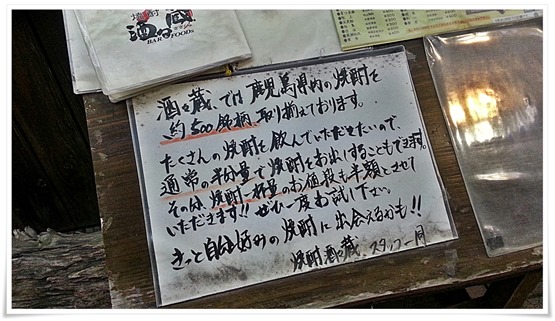 酒蔵
BAR FOODs
酒々蔵では鹿児島県内の焼酎を
約500銘柄、取り揃えております。
たくさんの焼酎を飲んでいただきたいので、
通常の半分量で焼酎をお出しすることもできます。
その分、焼酎一杯量のお値段も半額とさせて
いただきます!! ぜひ一度お試し下さい。
きっと自分好みの焼酎に出会えるかも!!
焼酎酒々蔵 スタッフ一同